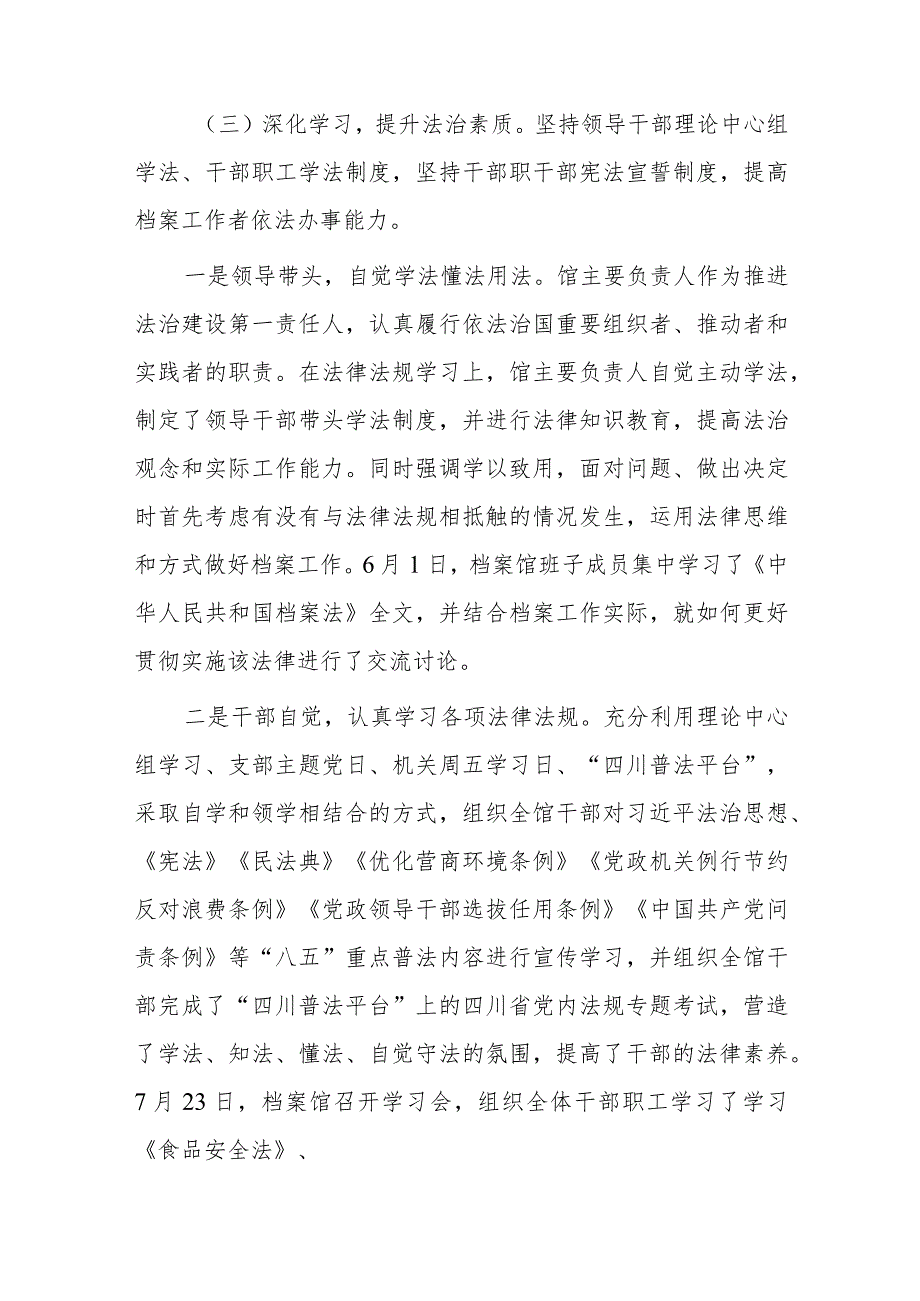 （三）深化学习，提升法治素质。坚持领导干部理论中心组
学法、干部职工学法制度，坚持干部职干部宪法宣誓制度，提高
档案工作者依法办事能力。
一是领导带头，自觉学法懂法用法。馆主要负责人作为推进
法治建设第一责任人，认真履行依法治国重要组织者、推动者和
实践者的职责。在法律法规学习上，馆主要负责人自觉主动学法，
制定了领导干部带头学法制度，并进行法律知识教育，提高法治
观念和实际工作能力。同时强调学以致用，面对问题、做出决定
时首先考虑有没有与法律法规相抵触的情况发生，运用法律思维
和方式做好档案工作。6月1日，档案馆班子成员集中学习了《中
华人民共和国档案法》全文，并结合档案工作实际，就如何更好
贯彻实施该法律进行了交流讨论。
二是干部自觉，认真学习各项法律法规。充分利用理论中心
组学习、支部主题党日、机关周五学习日、“四川普法平台”，
采取自学和领学相结合的方式，组织全馆干部对习近平法治思想、
《宪法》《民法典》《优化营商环境条例》《党政机关例行节约
反对浪费条例》《党政领导干部选拔任用条例》《中国共产党问
责条例》等“八五”重点普法内容进行宣传学习，并组织全馆干
部完成了“四川普法平台”上的四川省党内法规专题考试，营造
了学法、知法、懂法、自觉守法的氛围，提高了干部的法律素养。
7月23日，档案馆召开学习会，组织全体干部职工学习了学习
《食品安全法》、